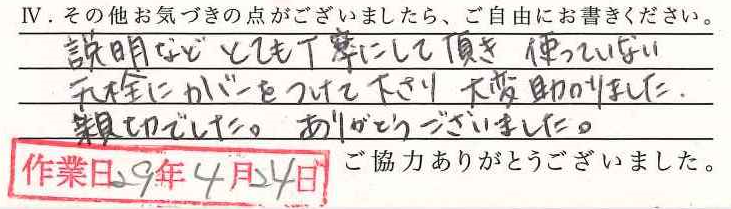 Ⅳ．その他お気づきの点がございましたら、ご自由にお書きください。
説明など とても丁寧にして頂き 使っていない
元栓にカバーをつけて下さり 大変助かりました.
親切でした。 ありがとうございました。
作業日29年4月24日
ご協力ありがとうございました。